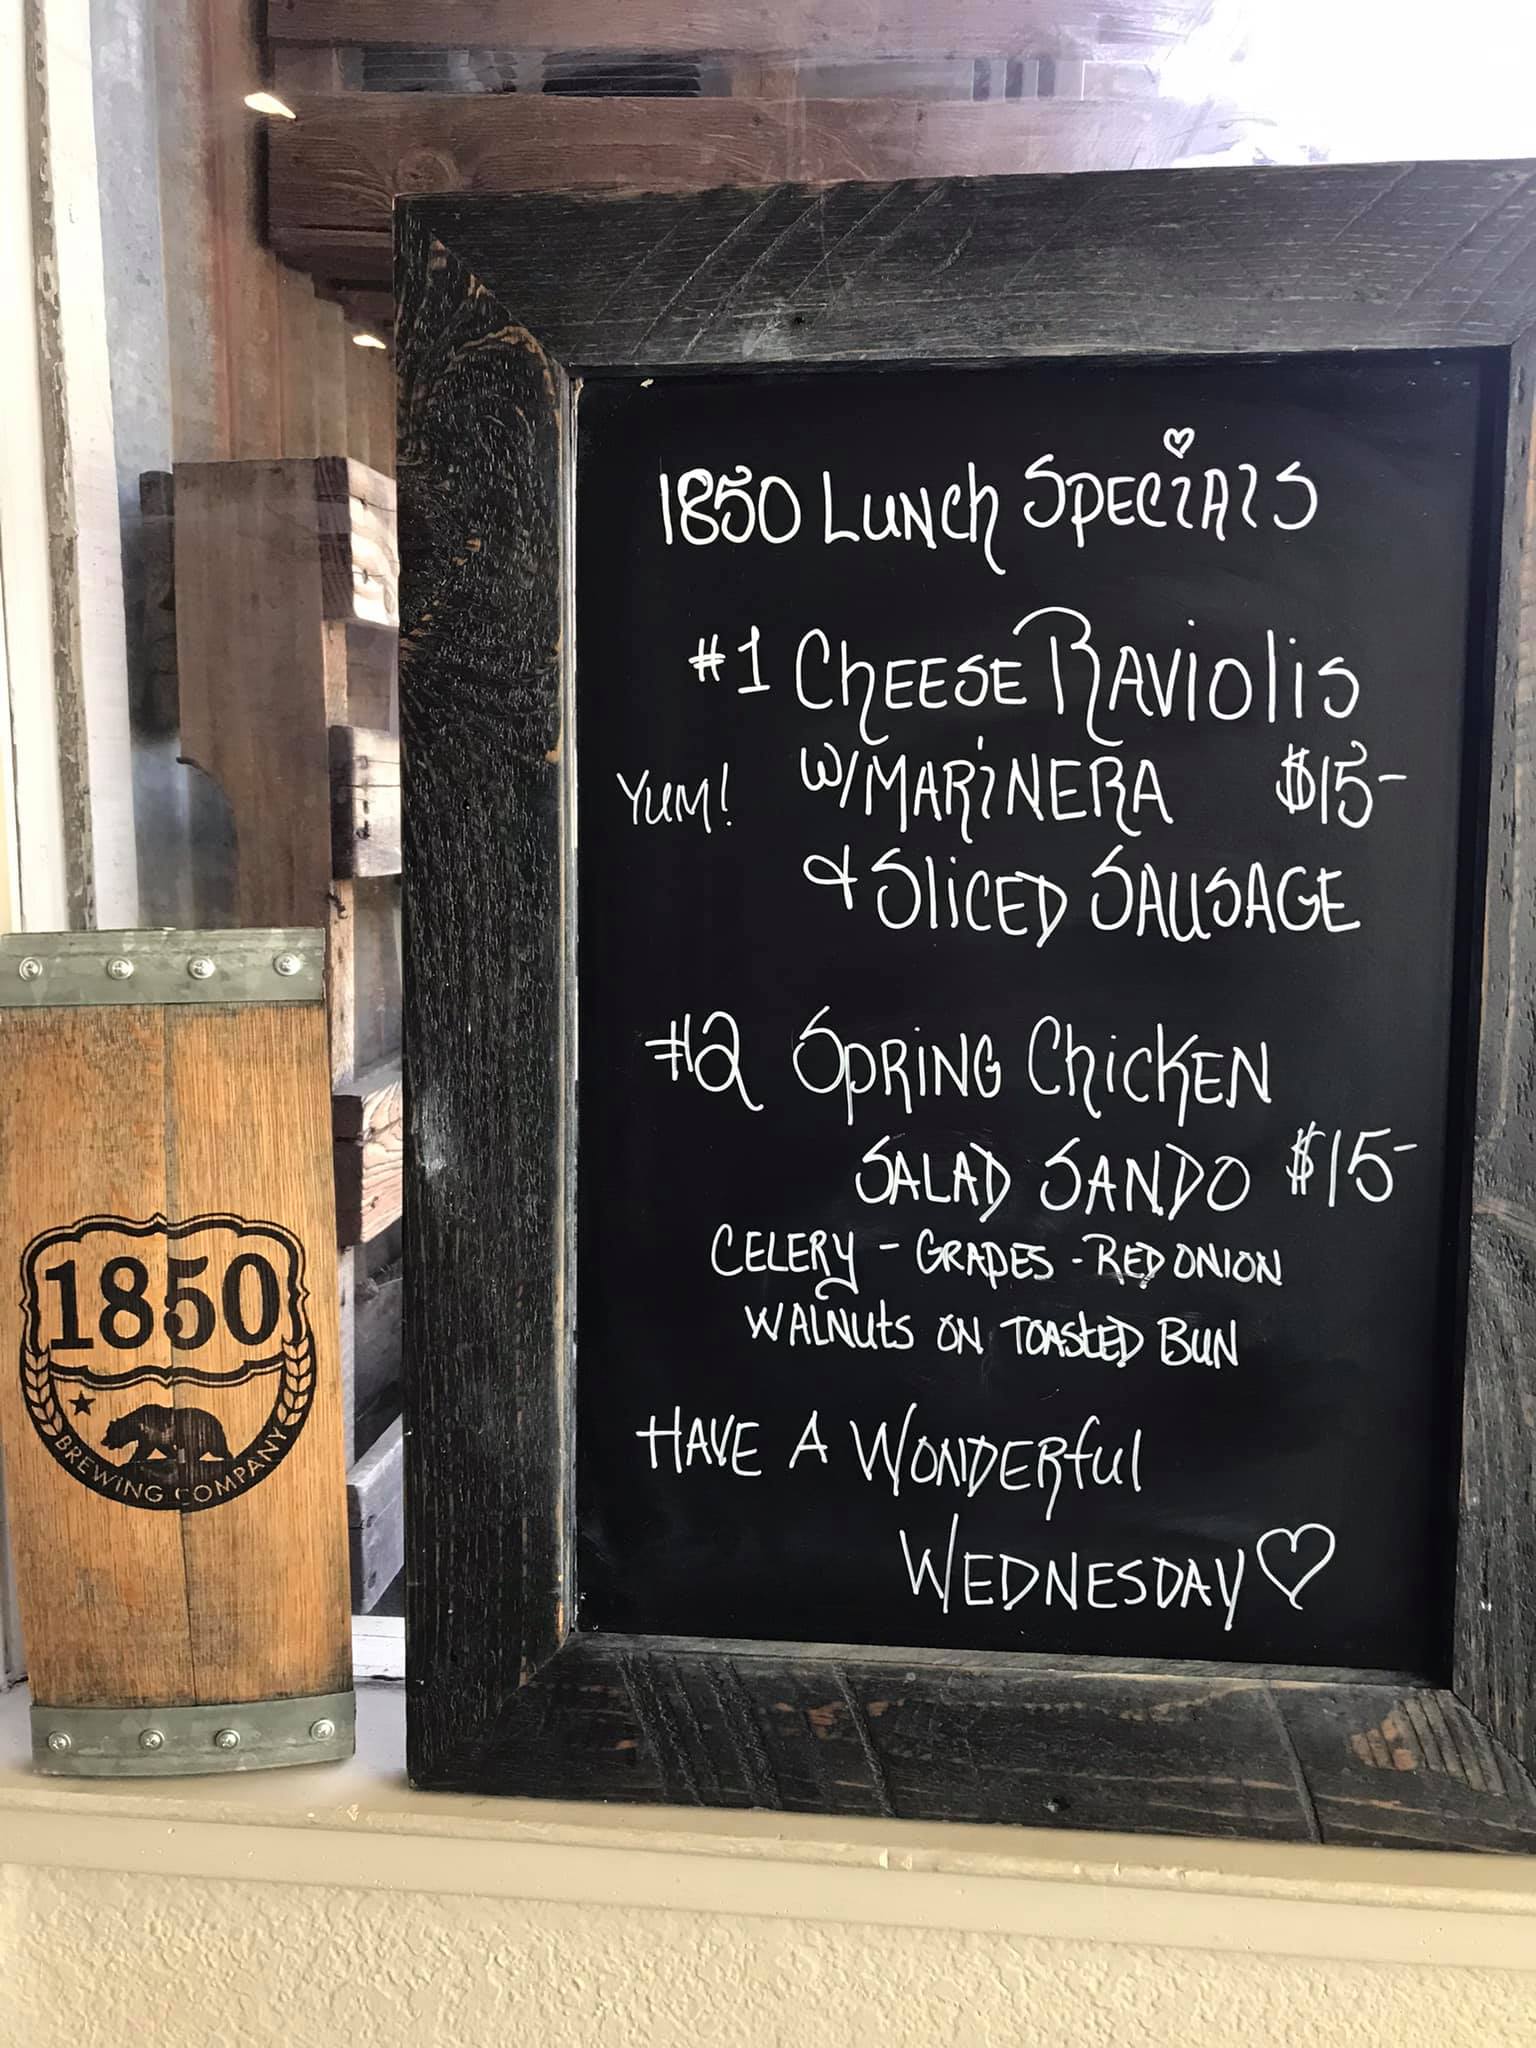 1850 LUNCh SPECiAlS
#1 ChEESE RAViOliS
W/MARiNERA $15-
YUM!
& SliCED SAUSAGE
#2 SPRING ChiCKEN
SALAD SANDO $15-
CELERY - GRAPES - RED ONION
WALNUtS ON TOAStED BUN
HAVE A WONDERfUl
WEDNESDAY
1850
BREWING COMPANY